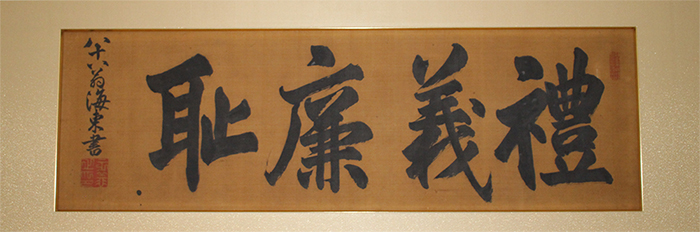 禮義廉恥
八十八翁海東書